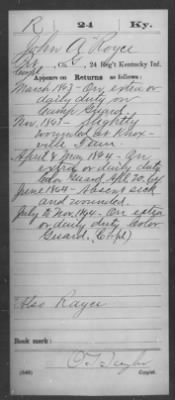 R 24 Ky.
John A Royce
Co. G, 24 Reg't Kentucky Inf.
Appears on Returns as follows:
March 1863 - On extra or
daily duty on
Camp Guard.
Nov. 1863 - slightly
wounded at Knox-
ville Tenn.
April & May 1864 - On
extra or daily duty
Color Guard Apl. 20, 64
June 1864 - Absent sick
and wounded.
July to Nov. 1864 - On extra
or daily duty Color
Guard. (Cpl)
Also Rayce
Book mark:
Copyist.